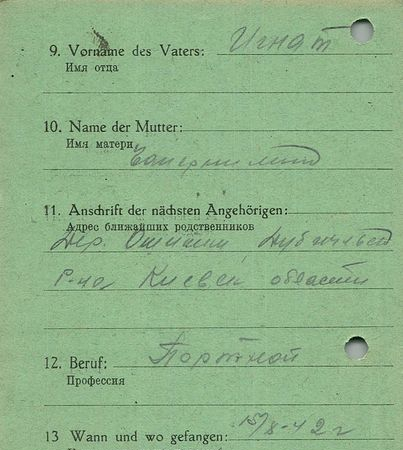 9. Vorname des Vaters: Игнат
Имя отца
10. Name der Mutter:
Имя матери
11. Anschrift der nächsten Angehörigen:
Адрес ближайших родственников
Дер.
р-на Киевск области
12. Beruf: Портной
Профессия
13 Wann und wo gefangen: 15/X-42 г